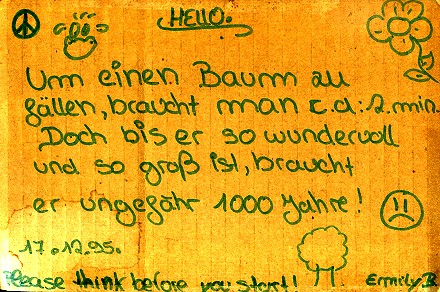 HELLO.
Um einen Baum zu
fällen, braucht man c.a: 2. min.
Doch bis er so wundervoll
und so groß ist, braucht
er ungefähr 1000 Jahre!
17.12.95.
Please think before you start! Emily B.